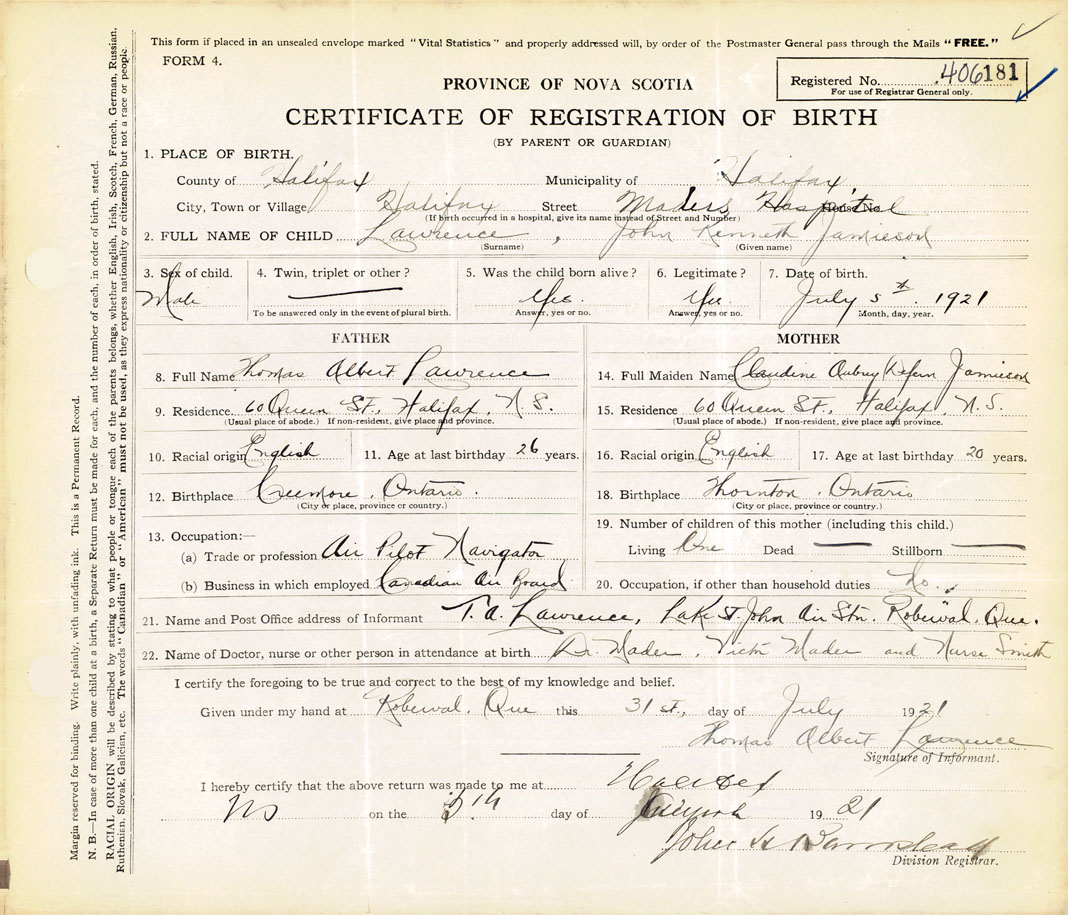 This form if placed in an unsealed envelope marked "Vital Statistics" and properly addressed will, by order of the Postmaster General pass through the Mails "FREE."
FORM 4.
Registered No. 406181
For use of Registrar General only.
PROVINCE OF NOVA SCOTIA
CERTIFICATE OF REGISTRATION OF BIRTH
(BY PARENT OR GUARDIAN)
1. PLACE OF BIRTH.
County of Halifax Municipality of Halifax
City, Town or Village Halifax Street Maders Hospital House No.
(If birth occurred in a hospital, give its name instead of Street and Number)
2. FULL NAME OF CHILD Lawrence, John Kenneth Jamieson
(Surname) (Given name)
3. Sex of child. 4. Twin, triplet or other? 5. Was the child born alive? 6. Legitimate? 7. Date of birth.
Male Yes. Yes July 5th. 1921
To be answered only in the event of plural birth. Answer, yes or no. Answer, yes or no. Month, day, year.
FATHER
8. Full Name Thomas Albert Lawrence
9. Residence 60 Queen St., Halifax, N.S.
(Usual place of abode.) If non-resident, give place and province.
10. Racial origin English 11. Age at last birthday 26 years.
12. Birthplace Creemore, Ontario.
(City or place, province or country.)
13. Occupation:—
(a) Trade or profession Air Pilot Navigator
(b) Business in which employed Canadian Air Board
MOTHER
14. Full Maiden Name Claudine Aubrey Jamieson
15. Residence 60 Queen St., Halifax, N.S.
(Usual place of abode.) If non-resident, give place and province.
16. Racial origin English 17. Age at last birthday 20 years.
18. Birthplace Thornton, Ontario
(City or place, province or country.)
19. Number of children of this mother (including this child.)
Living One Dead Stillborn
20. Occupation, if other than household duties No.
21. Name and Post Office address of Informant T.A. Lawrence, Lake St. John Air Stn. Roberval, Que.
22. Name of Doctor, nurse or other person in attendance at birth Dr. Mader, Victor Mader and Nurse Smith
I certify the foregoing to be true and correct to the best of my knowledge and belief.
Given under my hand at Roberval, Que this 31st., day of July 1921
Thomas Albert Lawrence
Signature of Informant.
I hereby certify that the above return was made to me at Halifax
NS on the 5th day of August 1921
John H Barnstead
Division Registrar.
Margin reserved for binding. Write plainly, with unfading ink. This is a Permanent Record.
N. B.—In case of more than one child at a birth, a Separate Return must be made for each, and the number of each, in order of birth, stated.
RACIAL ORIGIN will be described by stating to what people or tongue each of the parents belongs, whether English, Irish, Scotch, French, German, Russian,
Ruthenian, Slovak, Galician, etc. The words "Canadian" or "American" must not be used, as they express nationality or citizenship but not a race or people.